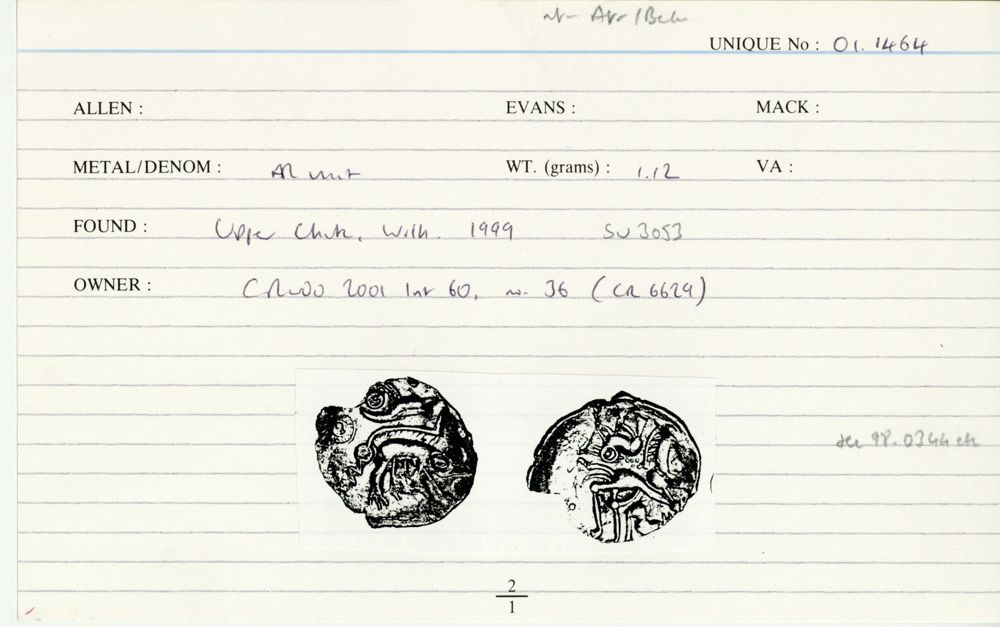 UNIQUE No : 01.1464
ALLEN : EVANS : MACK :
METAL/DENOM : AR unit WT. (grams) : 1.12 VA :
FOUND : Upper Chute, Wilts. 1999 SU 3053
OWNER : 2001 60, no. 36 (CR 6629)
98.0344
2
1